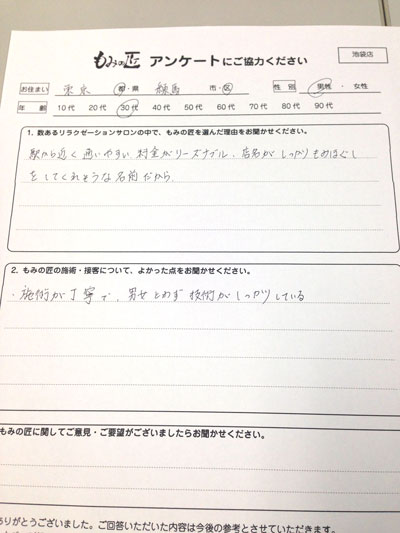 もみの匠 アンケートにご協力ください
池袋店
お住まい 東京 都・県 練馬 市・区 性別 男性・女性
年齢 10代 20代 30代 40代 50代 60代 70代 80代 90代
1. 数あるリラクゼーションサロンの中で、もみの匠を選んだ理由をお聞かせください。
駅から近く通いやすい 料金がリーズナブル、店名がしっかりもみほぐし
をしてくれそうな名前だから
2. もみの匠の施術・接客について、よかった点をお聞かせください。
・施術が丁寧で、男女とわず技術がしっかりしている
もみの匠に関してご意見・ご要望がございましたらお聞かせください。
ありがとうございました。ご回答いただいた内容は今後の参考とさせていただきます。